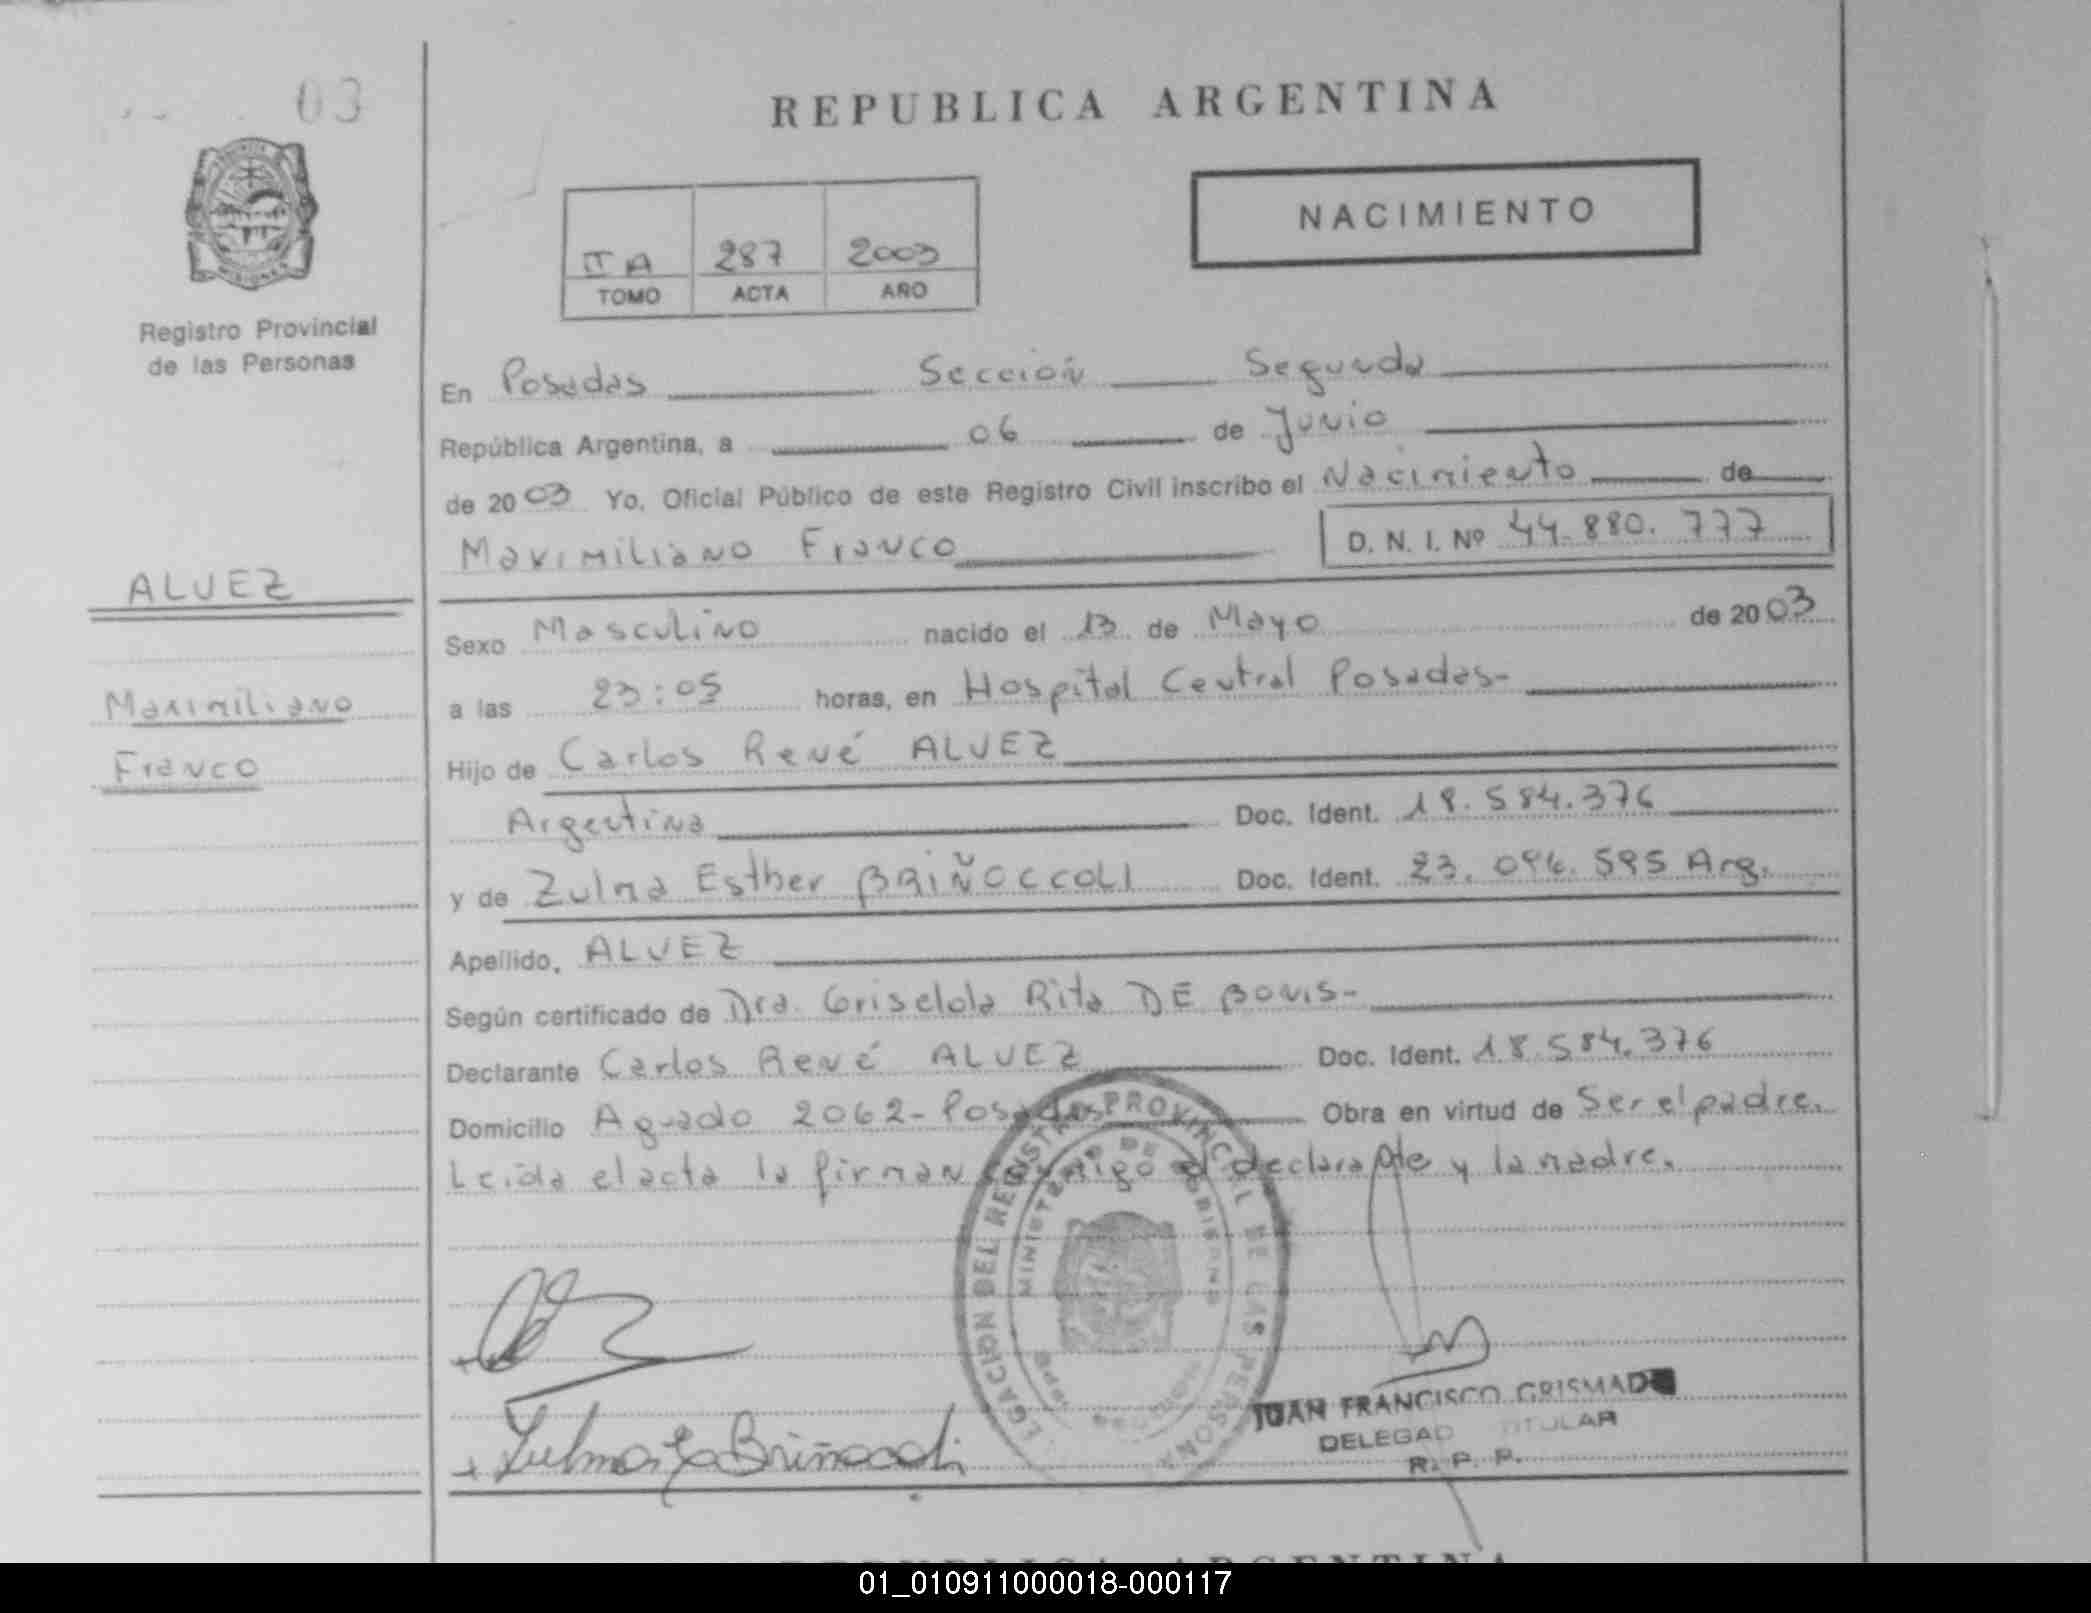 03
REPUBLICA ARGENTINA
NACIMIENTO
II A 287 2003
TOMO ACTA AÑO
Registro Provincial
de las Personas
En Posadas Sección Segunda
República Argentina, a 06 de Junio
de 2003 Yo, Oficial Público de este Registro Civil inscribo el Nacimiento de
Maximiliano Franco D. N. I. Nº 44.880.777
ALVEZ
Maximiliano
Franco
Sexo Masculino nacido el 13 de Mayo de 2003
a las 23:05 horas, en Hospital Central Posadas-
Hijo de Carlos René ALVEZ
Argentina Doc. Ident. 18.584.376
y de Zulma Esther BRIÑOCCOLI Doc. Ident. 23.096.595 Arg.
Apellido, ALVEZ
Según certificado de Dra. Griselda Rita DE BONIS-
Declarante Carlos René ALVEZ Doc. Ident. 18.584.376
Domicilio Aguado 2062-Posadas Obra en virtud de Ser el padre.
Leida el acta la firman conmigo el declarante y la madre.
DELEGACION DEL REGISTRO PROVINCIAL DE LAS PERSONAS
MINISTERIO DE GOBIERNO
JUAN FRANCISCO GRISMADO
DELEGADO TITULAR
R. P. P.
Zulma E Briñoccoli
REPUBLICA ARGENTINA
01_010911000018-000117